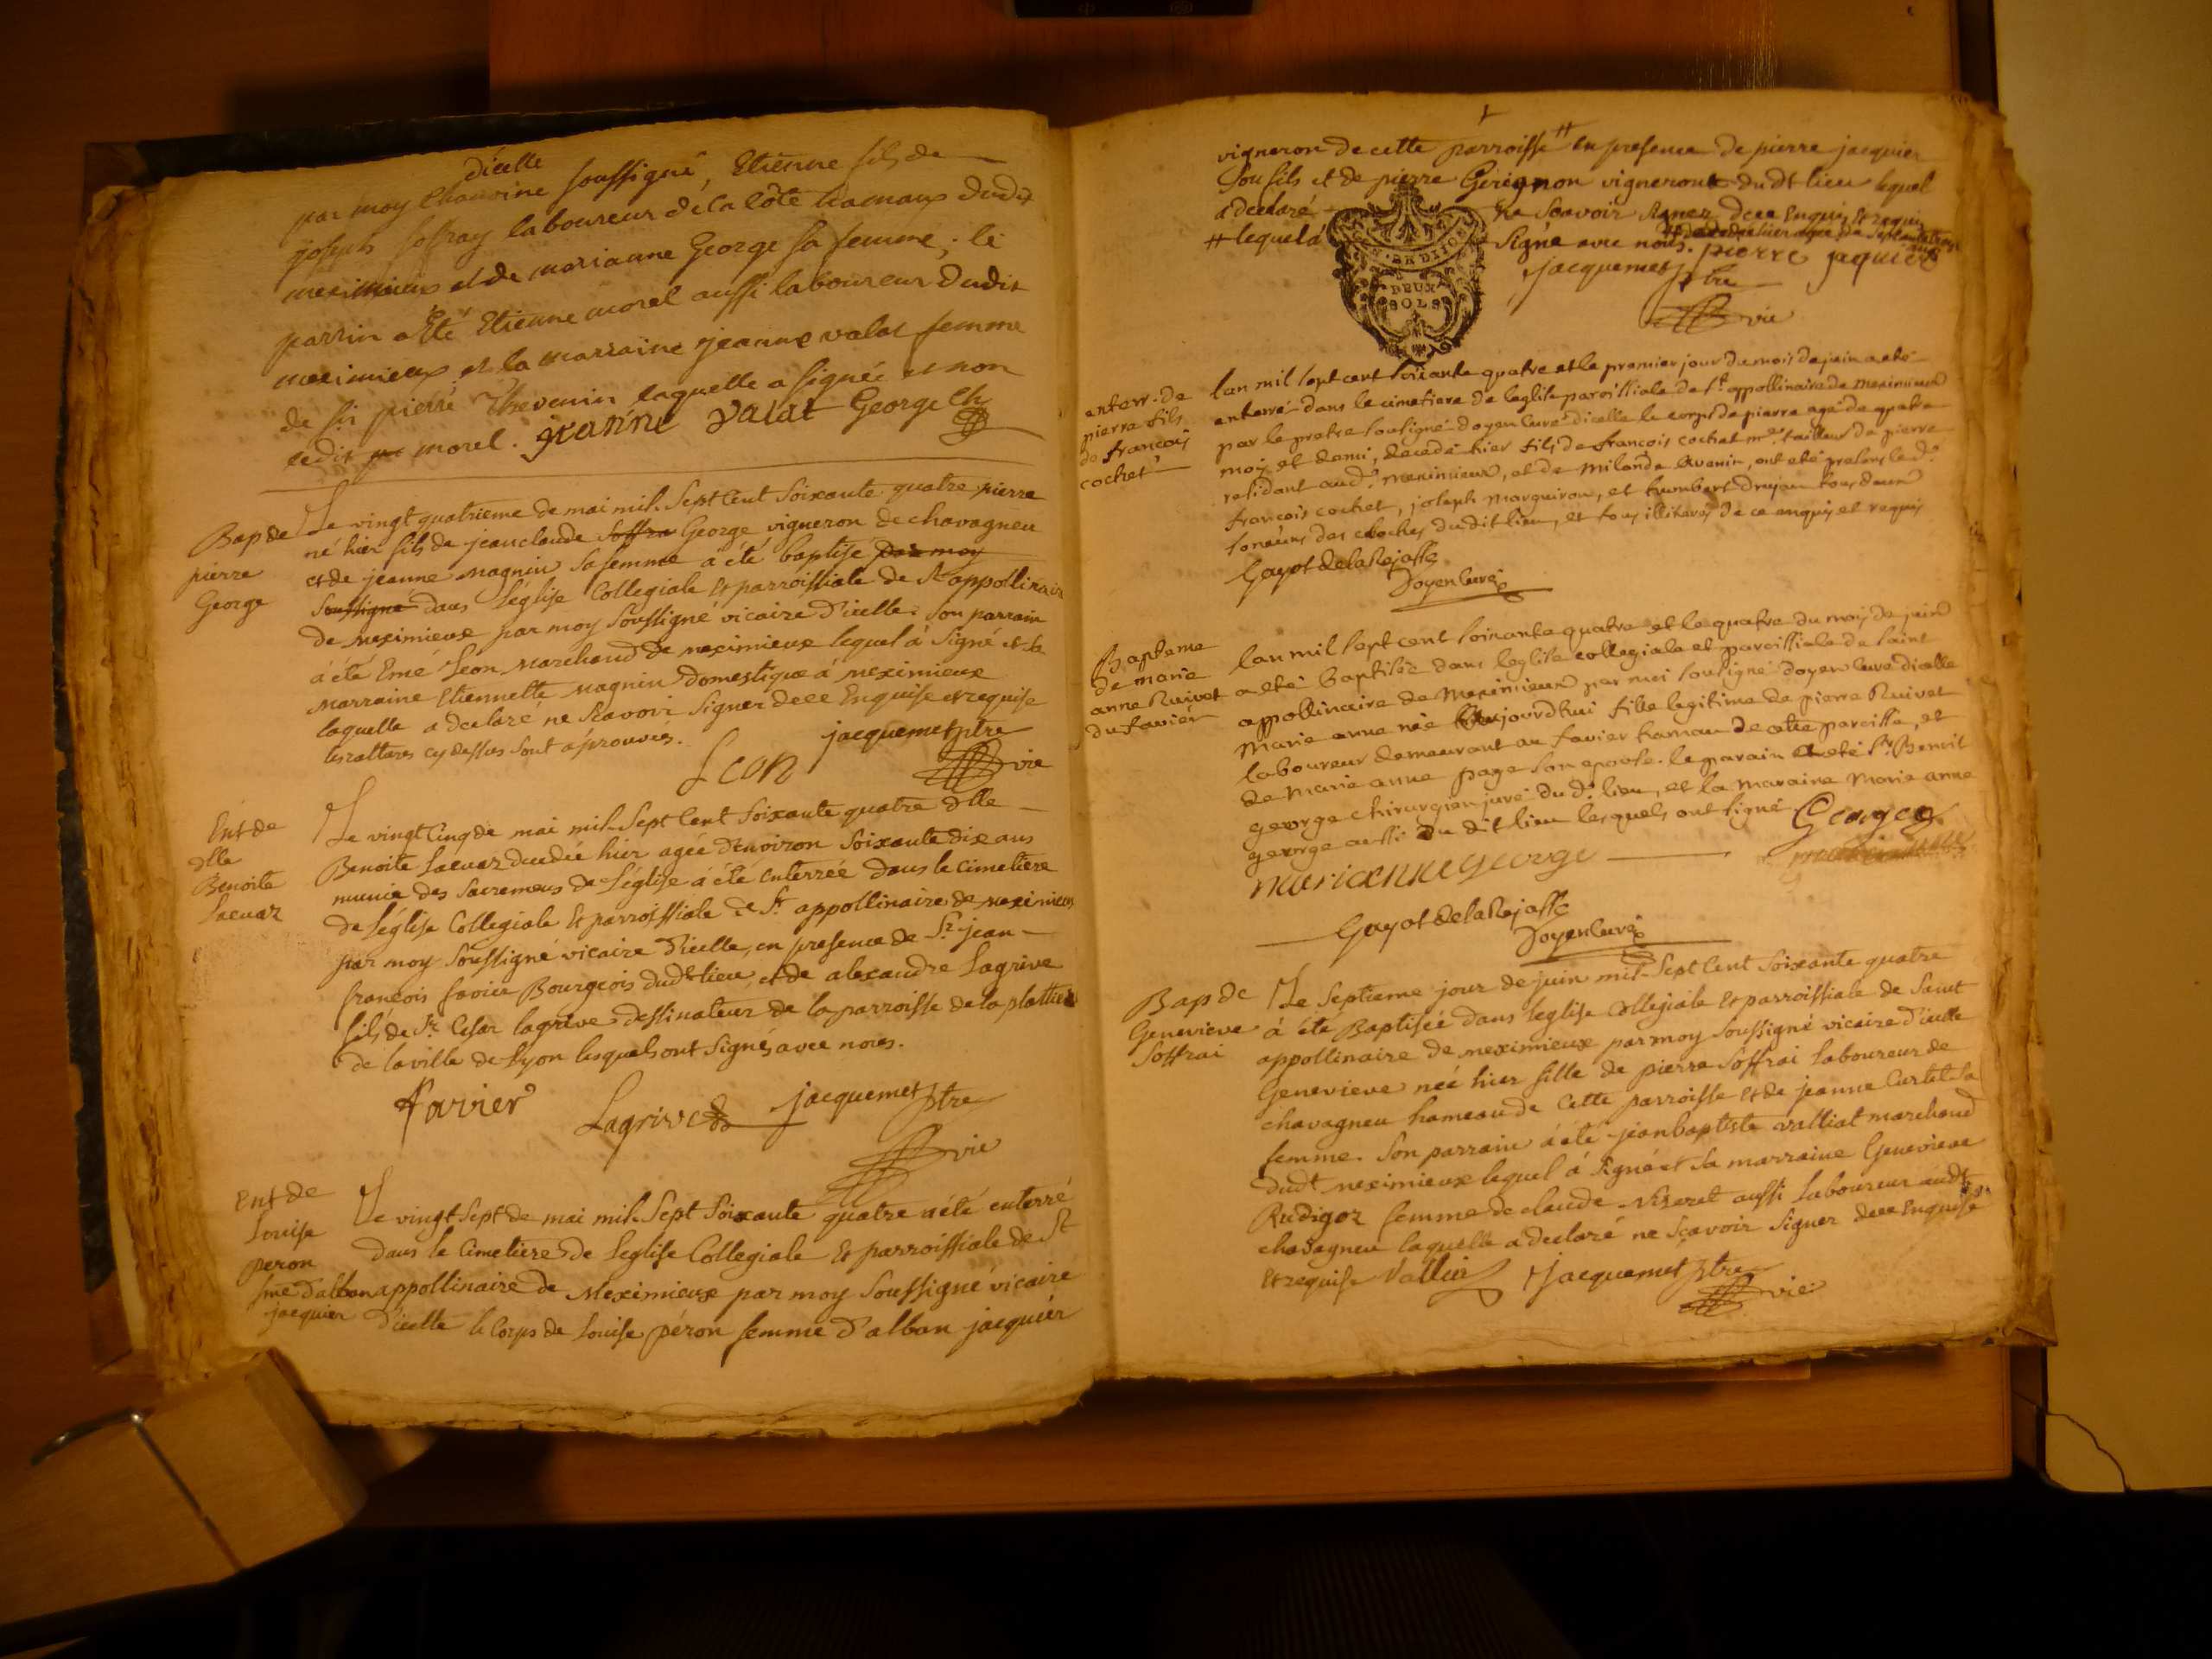 dicelle
par moy Chanoine soussigné, Etienne fils de
joseph soffray laboureur de la Côte hamaux dudit
meximieux et de marianne George sa femme; le
parrin a Eté Etienne morel aussi laboureur dudit
meximieux et la marraine jeanne valat femme
de sir pierre Thevenin laquelle a signée et non
ledit morel. jeanne valat George Ch
Bap de
pierre
George
Le vingt quatrieme de mai mil Sept Cent Soixante quatre pierre
né hier fils de jean claude Soffra George vigneron de chavagneu
et de jeanne magnin sa femme à été baptisé par moy
Soussigné dans l'église Collegiale Et parroissiale de St appollinaire
de meximieux par moy Soussigné vicaire d'icelle. Son parrain
à été Emé Léon Marchand de meximieux lequel à Signé et la
marraine Etiennette magnin domestique à meximieux
laquelle a declaré ne Scavoir Signer de ce Enquise et requise
les rattures cy dessus sont àprouvées.
Leon jacquemet ptre
vic
Ent de
dlle
Benoite
Lacuaz
Le vingt Cinq de mai mil Sept Cent Soixante quatre dlle
Benoite Lacuaz decedée hier agée d'Environ Soixante dix ans
munie des Sacremens de L'église à été Enterrée dans le Cimetiere
de L'église Collegiale Et parroissiale de St appollinaire de meximieux
par moy Soussigné vicaire d'icelle, en presence de Sr jean
françois favier Bourgeois dudt lieu, et de alexandre Lagrive
fils de Sr Cesar lagrive dessinateur de la parroisse de la plattiere
de la ville de Lyon lesquels ont Signés avec nous.
favier Lagrive jacquemet ptre
vic
Ent de
Louise
peron
fme d'alban
jacquier
Le vingt Sept de mai mil Sept Soixante quatre a été enterré
dans le Cimetiere de L'eglise Collegiale Et parroissiale de St
appollinaire de Meximieux par moy Soussigné vicaire
d'icelle le Corps de Louise péron femme d'alban jacquier
vigneron de cette parroisse # en presence de pierre jacquier
Son fils et de pierre vignerons dudt lieu lequel
a declaré ne Scavoir Signer de ce Enquis Et requis
# lequel à Signé avec nous. pierre jaquier
DEUX
SOLS
jacquemet ptre
vic
enterr. de
pierre fils
de francois
cochet
lan mil sept cent soixante quatre et le premier jour du mois de juin a eté
enterré dans le cimetiere de leglise paroissiale de st appollinaire de meximieux
par le pretre sousigné doyen curé dicelle le corps de pierre agé de quatre
mois et demi, decedé hier fils de francois cochet me tailleur de pierre
residant aud. meximieux, et de milande avenin, ont eté presens led.
francois cochet, joseph marguiron, et humbert drujon tous deux
soneurs des cloches dudit lieu, et tous illiterés de ce enquis et requis
Gayot de la Rejasse
Doyen Curé
Bapteme
de marie
anne Ruivet
du favier
lan mil sept cent soixante quatre et le quatre du mois de juin
a eté baptisée dans leglise collegiale et paroissiale de saint
appollinaire de Meximieux par moi sousigné doyen curé dicelle
Marie anne née aujourdhui fille legitime de pierre Ruivet
laboureur demeurant au favier hamau de cette paroisse, et
de marie anne page son epouse. le parain a eté Sr Benoit
george chirurgien juré du d. lieu, et la maraine Marie anne
george aussi du dit lieu lesquels ont signé George
marianne george
Gayot de la Rejasse
Doyen Curé
Bap de
Genevieve
Soffrai
Le Septieme jour de juin mil Sept Cent Soixante quatre
à été Baptisée dans l'eglise Collegiale Et parroissiale de Saint
appollinaire de meximieux par moy Soussigné vicaire d'icelle
Genevieve née hier fille de pierre Soffrai Laboureur de
chavagneu hameau de Cette parroisse et de jeanne Curtet Sa
femme. Son parrain à été jean baptiste valliat marchand
dudt meximieux lequel à Signé et Sa marraine Genevieve
Rudigoz femme de claude viseret aussi Laboureur audt
chavagneu laquelle a declaré ne Sçavoir Signer de ce Enquise
Et requise Jacquemet ptre
vic